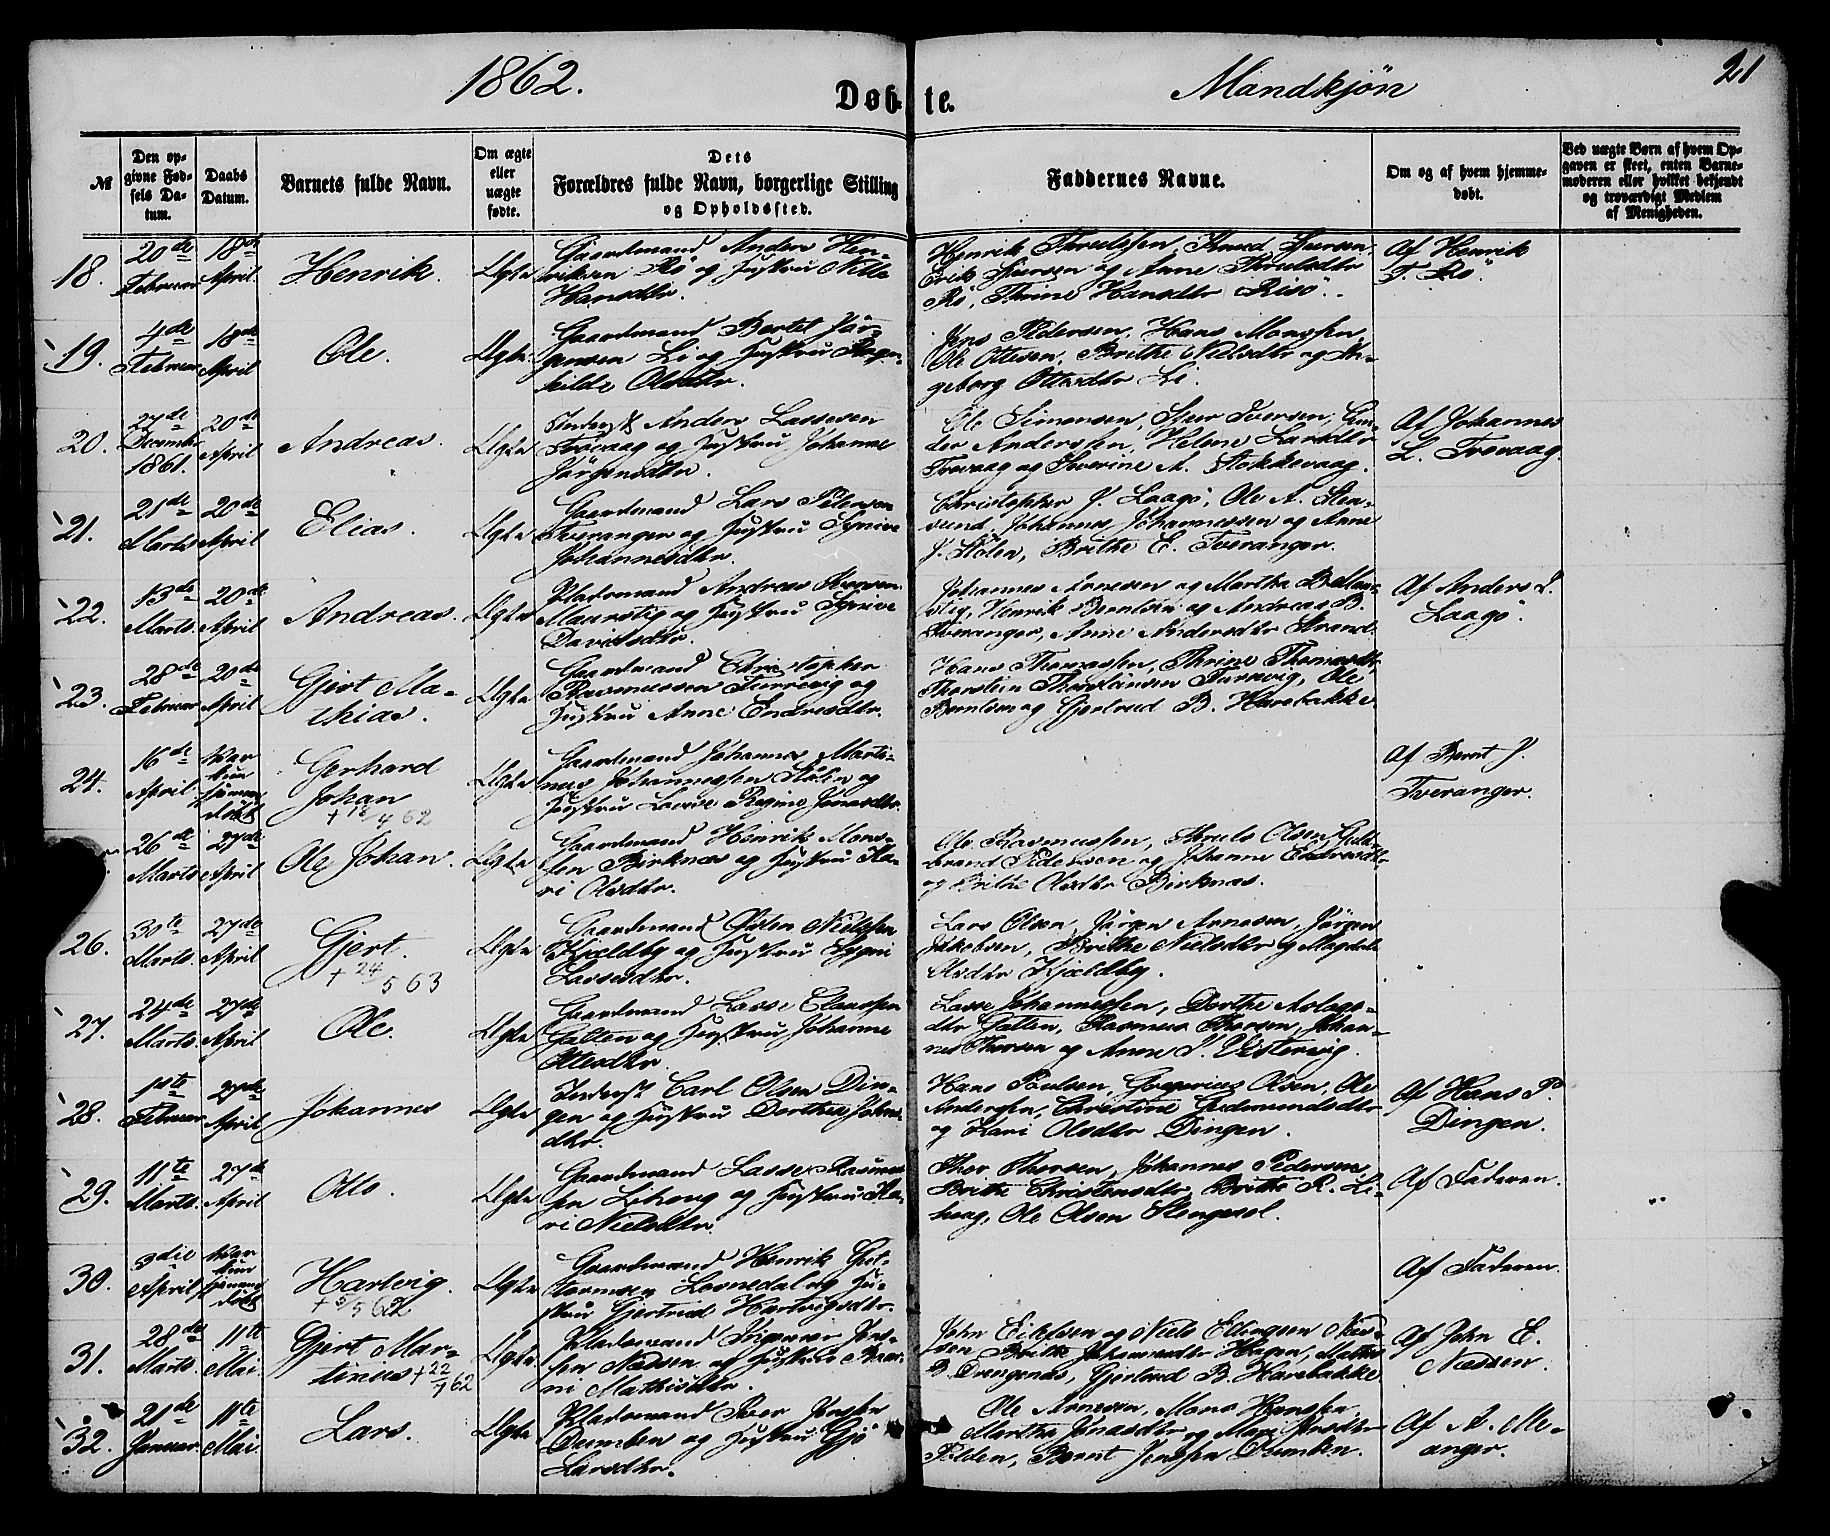 1862.
Døb-te.
Mandkjøn
21
№
Den op-
givne Fød-
sels Da-
tum.
Daabs
Datum.
Barnets fulde Navn.
Om ægte
eller
uægte
fødte.
Dets
Forældres fulde Navn, borgerlige Stilling
og Opholdssted.
Faddernes Navne.
Om og af hvem hjemme-
døbt.
Ved uægte Børn af hvem Op-
gaven er skeet, enten Barne-
moderen eller hvilket bekjendt
og troværdigt Medlem
af Menigheden.
18.
20de
Februar
18de
April.
Henrik.
Ægte
Gaardmand Anders Hen-
riksen Rö og Hustru
Hansdtr.
Henrik Thrulssen, Knud Iversen,
Erik Iversen og Anne Thrulsdtr
Rö, Thrine Hansdtr Risö.
Af Henrik
T. Rö.
19.
4de
Februar
18de
April
Ole.
Ægte
Gaardmand Bertel Jör-
gensen Li og Hustru Ragn-
hilde Olsdtr.
Jens Pedersen, Hans Monssen,
Ole Ottesen, Brithe Nielsdtr og In-
geborg Ottesdtr Li.
20.
27de
Decembr
1861.
20de
April
Andreas.
Ægte
Inderst Anders Lassesen
Trovaag og Hustru Johanne
Jörgensdtr.
Ole Simonsen, Steer Iversen, Gun-
der Anderssen, Helene Larsdtr
Trovaag og Severine M. Stokkevaag.
Af Johannes
L. Trovaag.
21.
21de
Marts
20de
April
Elias.
Ægte
Gaardmand Lars Petersen
Tveranger og Hustru Synive
Johannesdtr.
Christopher J. Laagö, Ole A. Sten-
sund, Johannes Johannessen og Anne
J. Stölen, Brithe E. Tveranger.
22.
13de
Marts.
20de
April
Andreas.
Ægte
Pladsmand Andreas
Maarstig og Hustru Synive
Davidsdtr.
Johannes Arnesen og Martha B. Maar-
stig, Henrik Berntsen og Andreas B.
Tveranger, Anne Andersdtr Strand.
Af Anders S.
Laagö.
23.
28de
Februar
20de
April
Gjert Ma-
thias.
Ægte
Gaardmand Christopher
Rasmussen Furrevig og
Hustru Anne Endresdtr.
Hans Thomassen, Thrine Thomasdtr,
Thorstein Thorsteinsen Furrevig, Ole
Berntsen og Gjertrud B. Harebakke.
24.
16de
April
Var
kun
hjemme
döbt
Gerhard
Johan
+ 18/4 62
Ægte
Gaardmand Johannes Marti-
nus Johannessen Stölen og
Hustru Lovise Regine Jonasdtr.
Af Bernt J.
Tveranger.
26de
Marts
27de
April
Ole Johan.
Ægte
Gaardmand Henrik Mons-
sen Birknæs og Hustru Ka-
ri Olsdtr.
Ole Rasmussen, Thruls Olsen, Guld-
brand Pedersen og Johanne Endresdtr
og Brithe Olsdtr Birknæs.
26.
30te
Marts.
27de
April
Gjert.
+ 24/5 63
Ægte
Gaardmand Östen Nielssen
Kjeldby og Hustru Sygni
Lassesdtr.
Lars Olsen, Jörgen Arnesen, Jörgen
Jakobsen, Brithe Nielsdtr og Magdele
Olsdtr Kjeldby.
27.
24de
Marts.
27de
April
Ole.
Ægte
Gaardmand Lasse Claussen
Galten og Hustru Johanne
Ottesdtr.
Lasse Johannessen, Dorthe Aslags-
dtr Galten, Rasmus Thorsen, Johan-
nes Thorsen og Anne S. Vestervig.
28.
1ste
Februar
27de
April
Johannes
Ægte
Inderst Carl Olsen Din-
gen og Hustru Dorthea Johns-
dtr.
Hans Poulsen, Gregorius Olsen, Ole
Anderssen, Christine Gudmundsdtr
og Kari Olsdtr Dingen.
Af Hans P.
Dingen.
29.
11te
Marts.
27de
April
Otto.
Ægte
Gaardmand Lasse Rasmus-
sen Lihoug og Hustru Ka-
ri Nielsdtr.
Thor Thorsen, Johannes Pedersen,
Brithe Christensdtr, Brithe R. Li-
houg, Ole Olsen Slengesol.
Af Faderen.
30.
3die
April
Var
kun
hjemme
döbt
Hartvig.
+ 5/5 62
Ægte
Gaardmand Henrik Gut-
tormsen Lovnedal og Hu-
stru Gjertrud Hartvigsdtr.
Af Faderen.
31.
28de
Marts.
11te
Mai.
Gjert Mar-
tinius + 22/7 62
Ægte
Pladsmand Ingmar Jens-
sen Nessen og Hustru
Mathisdtr.
John Eilifsen og Niels Erlingsen Nes-
sen, Brithe Johannesdtr Hagen, Malene
B. Drengenæs, Gjertrud B. Harebakke.
Af John E.
Nessen.
32.
21de
Januar
11te
Mai.
Lars.
Ægte
Pladsmand Iver Jenssen
Dumben og Hustru Gjö
Larsdtr.
Ole Arnesen, Mons Hansen,
Martha Jonasdtr og Mari Jensdtr
Polden, Bernt Jenssen Dumben.
Af A. Me-
anger.